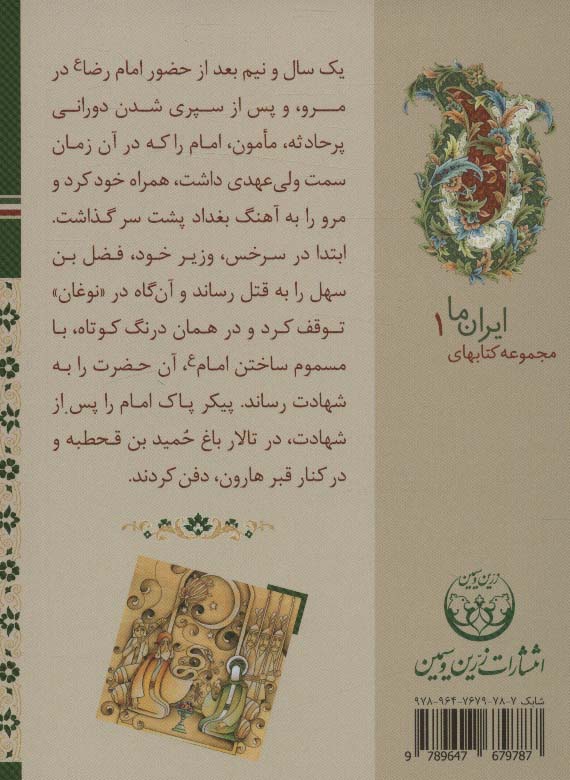 یک سال و نیم بعد از حضور امام رضا؏ در
مرو، و پس از سپری شدن دورانی
پرحادثه، مأمون، امام را که در آن زمان
سمت ولی‌عهدی داشت، همراه خود کرد و
مرو را به آهنگ بغداد پشت سر گذاشت.
ابتدا در سرخس، وزیر خود، فضل بن
سهل را به قتل رساند و آن‌گاه در «نوغان»
توقف کرد و در همان درنگ کوتاه، با
مسموم ساختن امام؏، آن حضرت را به
شهادت رساند. پیکر پاک امام را پس از
شهادت، در تالار باغ حُمید بن قحطبه و
در کنار قبر هارون، دفن کردند.
ایران ما ۱
مجموعه کتابهای
زرین و سیمین
انتشارات زرّین و سیمین
شابک ۷-۷۸-۷۶۷۹-۹۶۴-۹۷۸
9 789647 679787